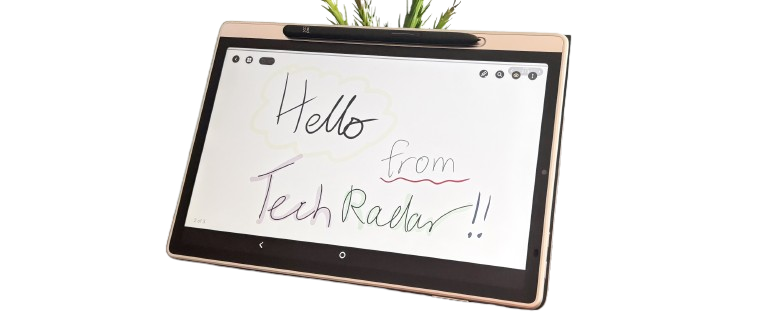 Hello
from
Tech Radar!!